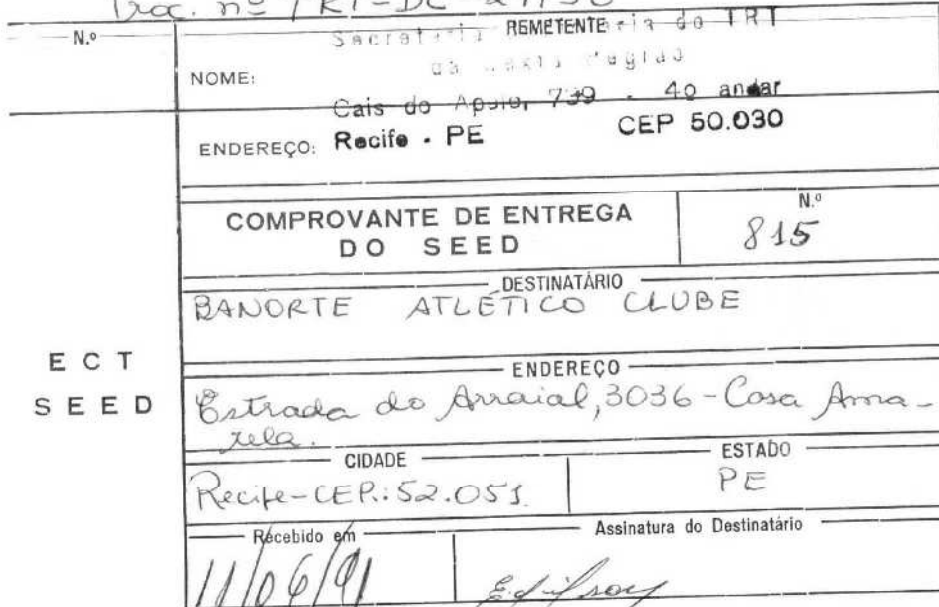 Proc. nº TRT-DC-
N.º
REMETENTE
Secretaria do TRT
da Sexta Região
NOME:
Cais do Apolo, 739 - 4º andar
ENDEREÇO: Recife - PE CEP 50.030
COMPROVANTE DE ENTREGA
DO SEED
N.º
815
DESTINATÁRIO
BANORTE ATLÉTICO CLUBE
ECT
SEED
ENDEREÇO
Estrada do Arraial, 3036 - Casa Ama-
rela.
CIDADE
ESTADO
Recife-CEP.: 52.051.
PE
Recebido em
Assinatura do Destinatário
11/06/91
Edilson